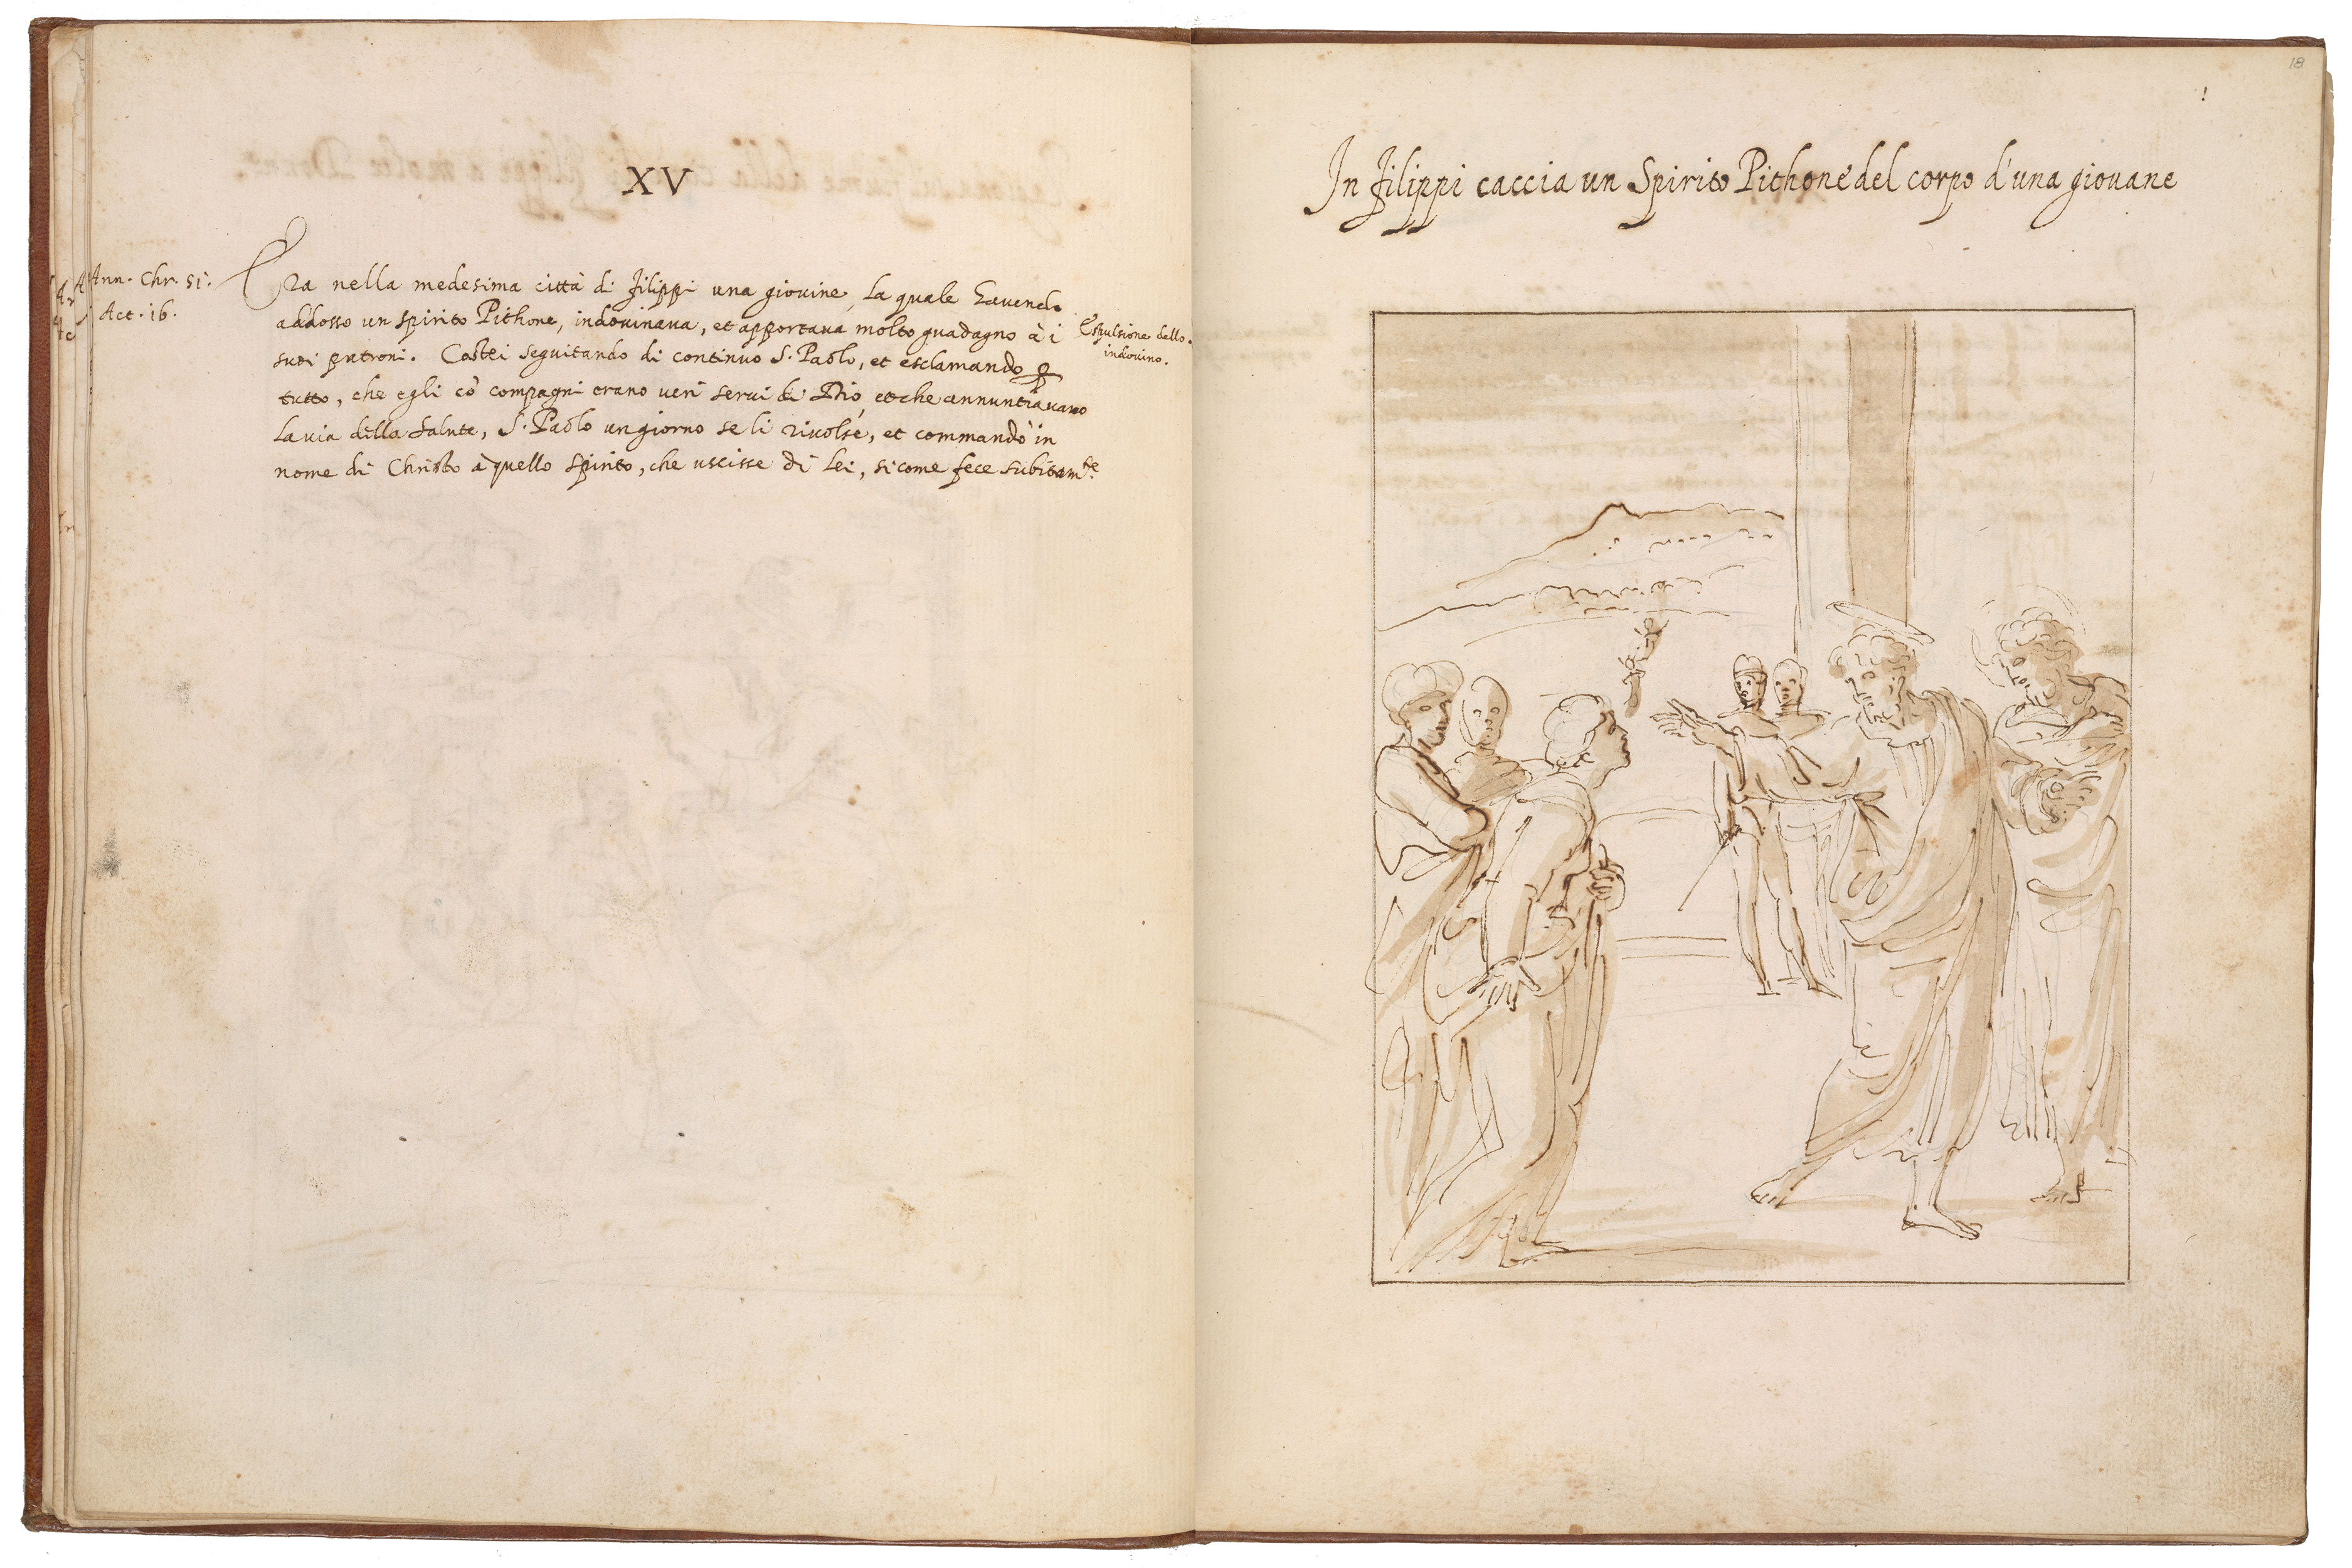 XV
Ann. Chr. 51.
Act. 16.
Era nella medesima città di Filippi una giovine, la quale havendo
addosso un spirito Pithone, indovinava, et apportava molto guadagno à i
suoi patroni. Costei seguitando di continuo S. Paolo, et esclamando ꝑ
tutto, che egli co' compagni erano veri servi di Dio, et che annuntiavano
la via della salute, S. Paolo un giorno se li rivolse, et commandò in
nome di Christo à quello spirito, che uscisse di lei, si come fece subitam.te
Espulsione dello
indovino.
18
In Filippi caccia un Spirito Pithone del corpo d'una giovane